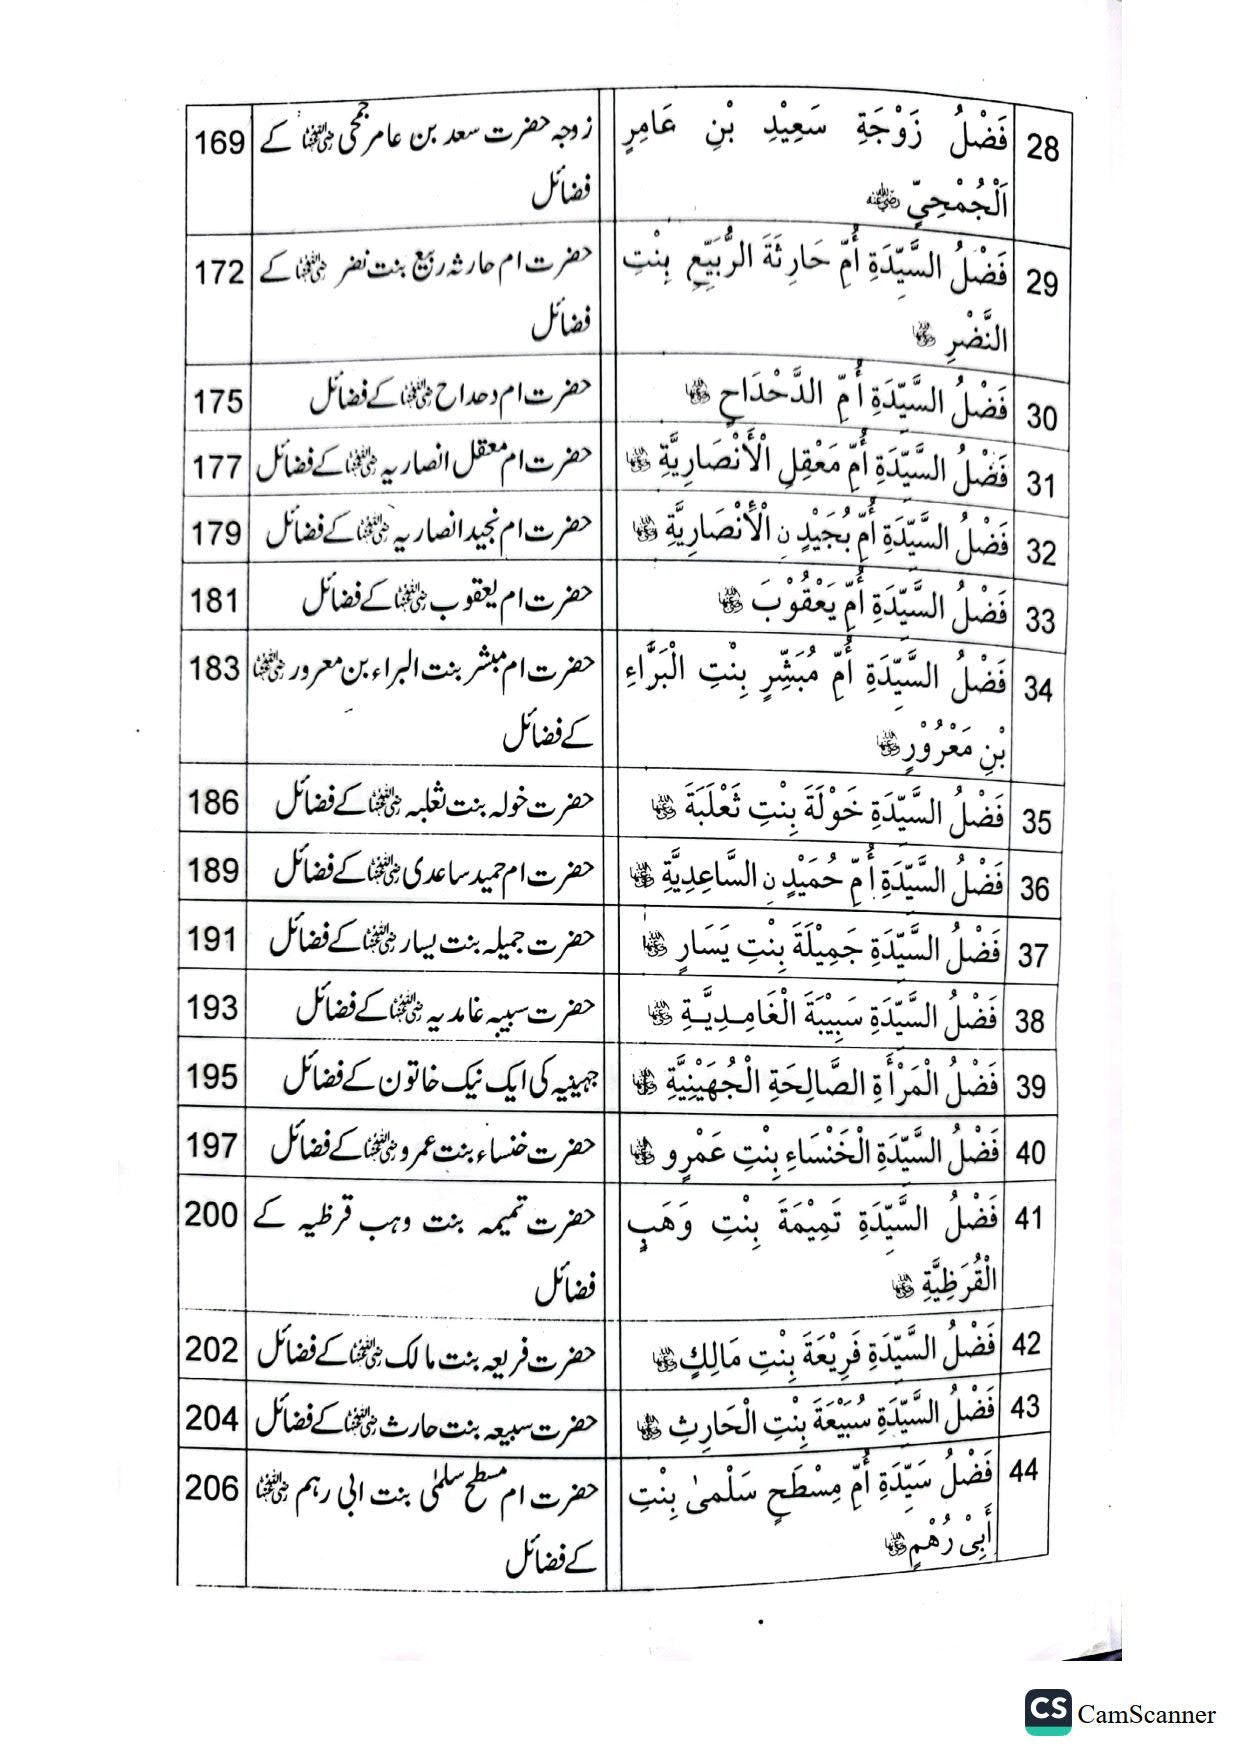 28 فَضْلُ زَوْجَةِ سَعِيْدِ بْنِ عَامِرٍ زوجہ حضرت سعد بن عامر جمحی رضی اللہ عنہا کے 169
اَلْجُمْحِيِّ رضی اللہ عنہ فضائل
29 فَضْلُ السَّيِّدَةِ أُمِّ حَارِثَةَ الرُّبَيِّعِ بِنْتِ حضرت ام حارثہ ربیع بنت نضر رضی اللہ عنہا کے 172
النَّضْرِ رضی اللہ عنہا فضائل
30 فَضْلُ السَّيِّدَةِ أُمِّ الدَّحْدَاحِ رضی اللہ عنہا حضرت ام دحداح رضی اللہ عنہا کے فضائل 175
31 فَضْلُ السَّيِّدَةِ أُمِّ مَعْقِلِ الْأَنْصَارِيَّةِ رضی اللہ عنہا حضرت ام معقل انصاریہ رضی اللہ عنہا کے فضائل 177
32 فَضْلُ السَّيِّدَةِ أُمِّ بُجَيْدٍ نِ الْأَنْصَارِيَّةِ رضی اللہ عنہا حضرت ام نجید انصاریہ رضی اللہ عنہا کے فضائل 179
33 فَضْلُ السَّيِّدَةِ أُمِّ يَعْقُوْبَ رضی اللہ عنہا حضرت ام یعقوب رضی اللہ عنہا کے فضائل 181
34 فَضْلُ السَّيِّدَةِ أُمِّ مُبَشِّرٍ بِنْتِ الْبَرَّاءِ حضرت ام مبشر بنت البراء بن معرور رضی اللہ عنہا 183
بْنِ مَعْرُوْرٍ رضی اللہ عنہا کے فضائل
35 فَضْلُ السَّيِّدَةِ خَوْلَةَ بِنْتِ ثَعْلَبَةَ رضی اللہ عنہا حضرت خولہ بنت ثعلبہ رضی اللہ عنہا کے فضائل 186
36 فَضْلُ السَّيِّدَةِ أُمِّ حُمَيْدٍ نِ السَّاعِدِيَّةِ رضی اللہ عنہا حضرت ام حمید ساعدی رضی اللہ عنہا کے فضائل 189
37 فَضْلُ السَّيِّدَةِ جَمِيْلَةَ بِنْتِ يَسَارٍ رضی اللہ عنہا حضرت جمیلہ بنت یسار رضی اللہ عنہا کے فضائل 191
38 فَضْلُ السَّيِّدَةِ سَبِيْبَةَ الْغَامِدِيَّةِ رضی اللہ عنہا حضرت سبیبہ غامدیہ رضی اللہ عنہا کے فضائل 193
39 فَضْلُ الْمَرْأَةِ الصَّالِحَةِ الْجُهَيْنِيَّةِ رضی اللہ عنہا جہینیہ کی ایک نیک خاتون کے فضائل 195
40 فَضْلُ السَّيِّدَةِ الْخَنْسَاءِ بِنْتِ عَمْرٍو رضی اللہ عنہا حضرت خنساء بنت عمرو رضی اللہ عنہا کے فضائل 197
41 فَضْلُ السَّيِّدَةِ تَمِيْمَةَ بِنْتِ وَهَبٍ حضرت تمیمہ بنت وہب قرظیہ کے 200
الْقُرَظِيَّةِ رضی اللہ عنہا فضائل
42 فَضْلُ السَّيِّدَةِ فَرِيْعَةَ بِنْتِ مَالِكٍ رضی اللہ عنہا حضرت فریعہ بنت مالک رضی اللہ عنہا کے فضائل 202
43 فَضْلُ السَّيِّدَةِ سُبَيْعَةَ بِنْتِ الْحَارِثِ رضی اللہ عنہا حضرت سبیعہ بنت حارث رضی اللہ عنہا کے فضائل 204
44 فَضْلُ سَيِّدَةِ أُمِّ مِسْطَحٍ سَلْمىٰ بِنْتِ حضرت ام مسطح سلمیٰ بنت ابی رہم رضی اللہ عنہا 206
أَبِىْ رُهْمٍ رضی اللہ عنہا کے فضائل
CS CamScanner